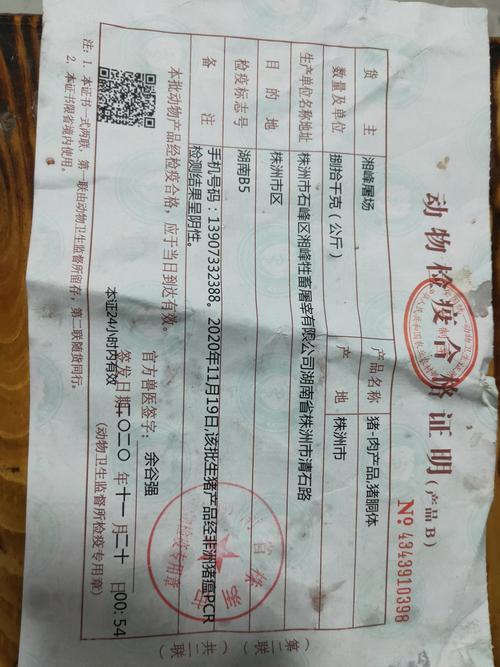 动物检疫合格证明(产品B)
№ 4343910398
货 主 湘峰屠场 产品名称 猪-肉产品,猪胴体
数量及单位 捌拾千克(公斤) 产 地 株洲市
生产单位名称地址 株洲市石峰区湘峰牲畜屠宰有限公司湖南省株洲市清石路
目 的 地 株洲市区
检疫标志号 湖南B5
备 注 手机号码:13907332388。2020年11月19日,该批生猪产品经非洲猪瘟PCR
检测结果呈阴性。
本批动物产品经检疫合格,应于当日到达有效。
官方兽医签字:余谷强
签发日期:二〇二〇年十一月二十日00:54
本证24小时内有效
(动物卫生监督所检疫专用章)
注:1. 本证书一式两联,第一联由动物卫生监督所留存,第二联随货同行。
2. 本证书限省境内使用。
第二联
(共二联)
检疫专用章